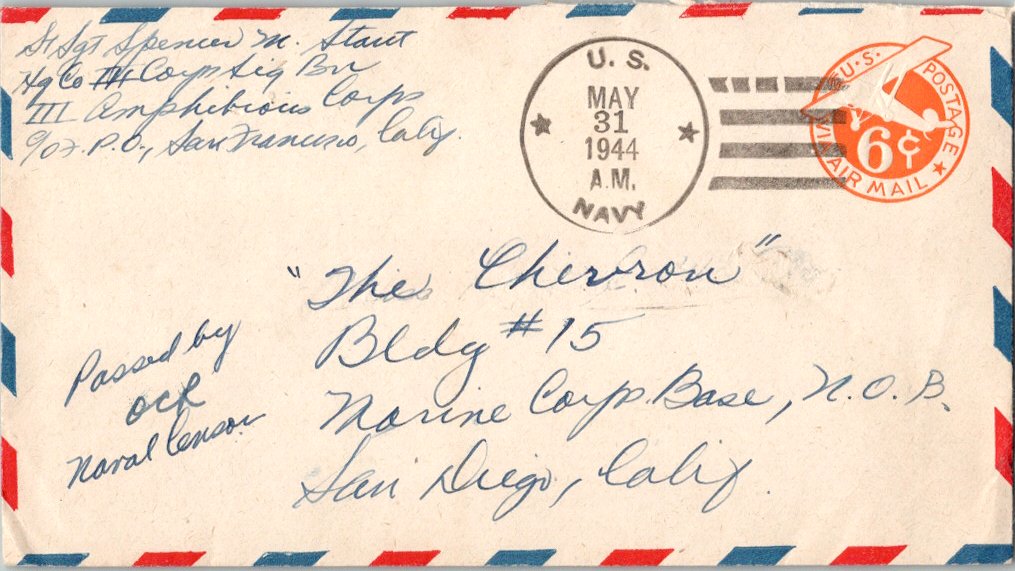 St Sgt Spencer M. Stout
Hq Co III Corps Sig Bn
III Amphibious Corps
℅ F.P.O., San Francisco, Calif.
U. S.
MAY
31
1944
A.M.
NAVY
U.S. POSTAGE
6¢
VIA AIR MAIL
"The Chevron"
Bldg #15
Marine Corps Base, N.O.B.
San Diego, Calif.
Passed by
Naval Censor